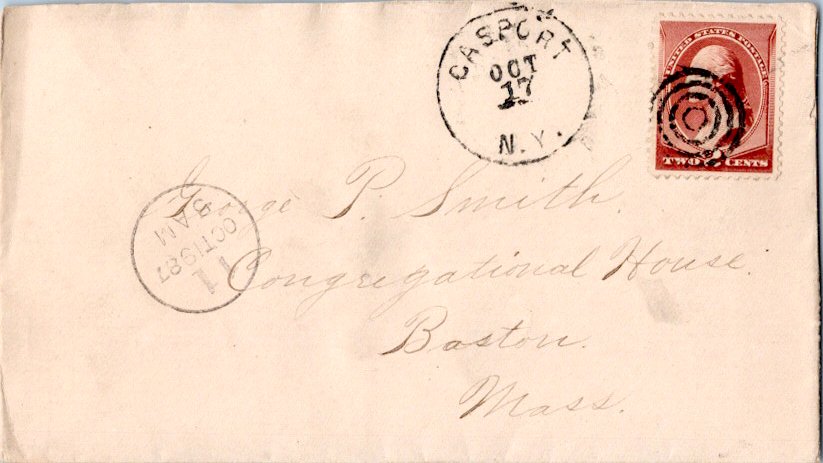 CASPORT
OCT
17
N.Y.
UNITED STATES POSTAGE
TWO 2 CENTS
George P. Smith.
3 AM
OCT 19 87
11
Congregational House.
Boston.
Mass.